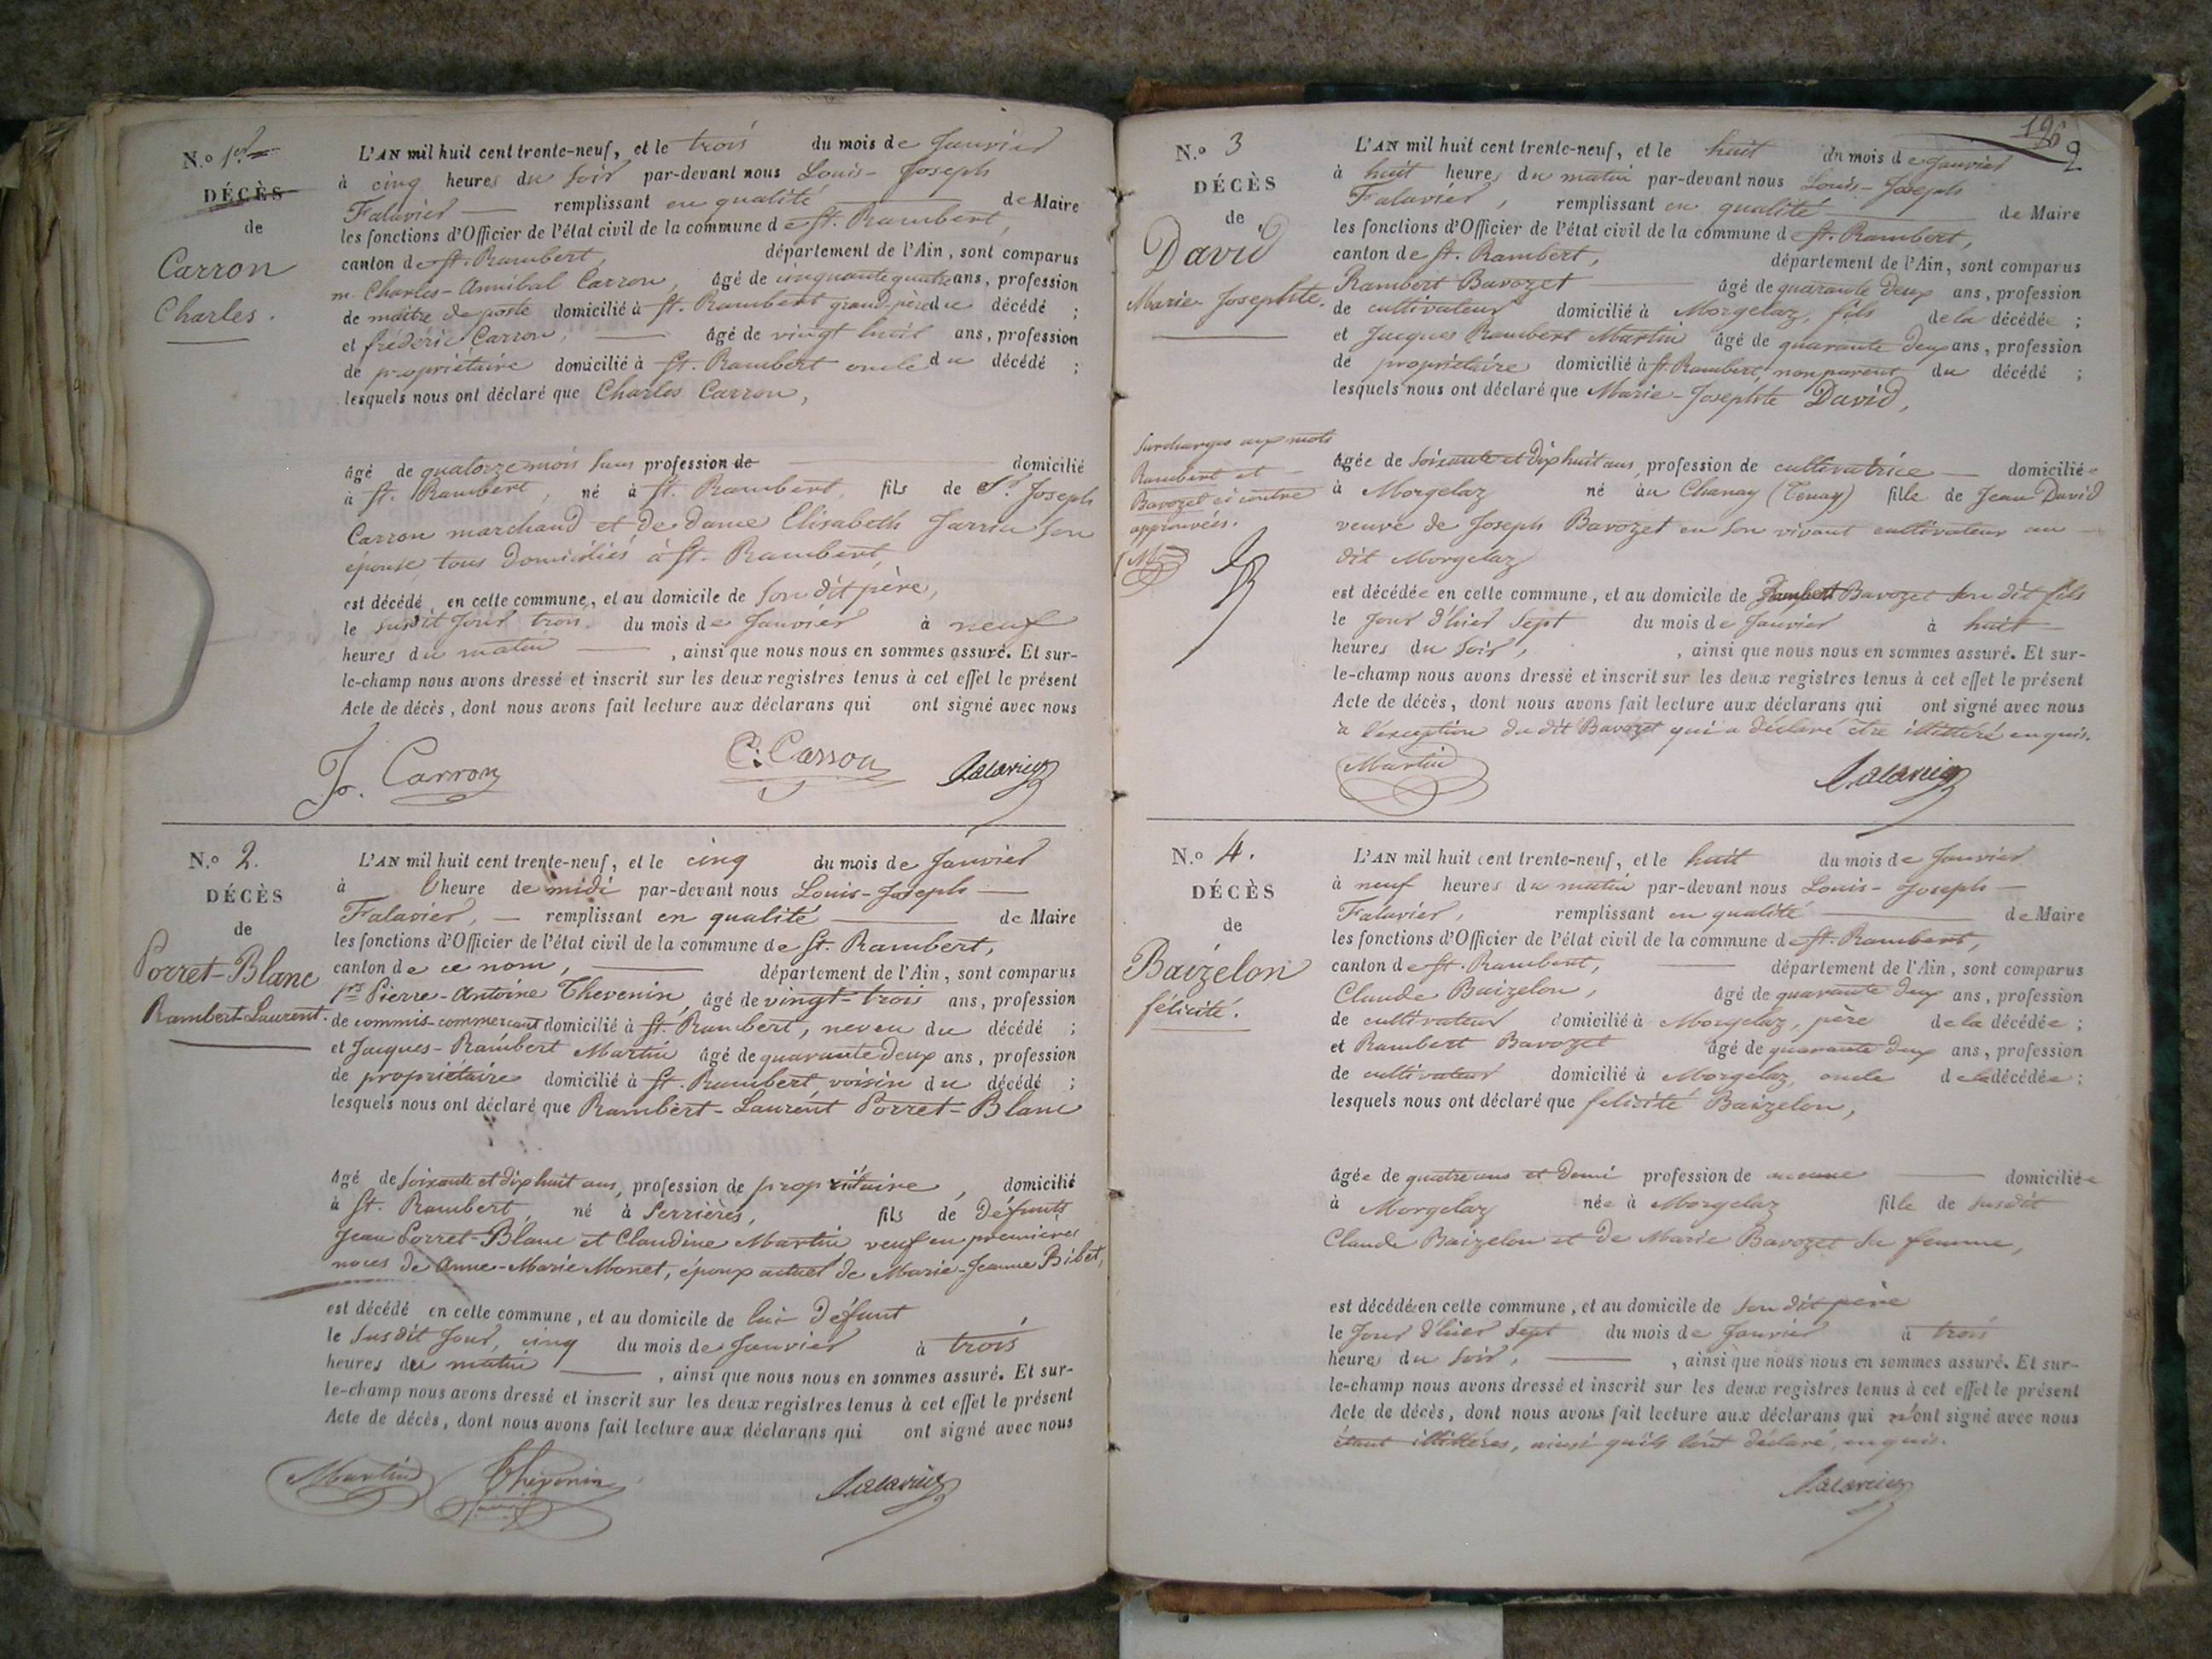 N.o 1er
DÉCÈS
de
Carron
Charles.
L'AN mil huit cent trente-neuf, et le trois du mois de Janvier
à cinq heures du soir par-devant nous Louis-Joseph
Falavier remplissant en qualité de Maire
les fonctions d'Officier de l'état civil de la commune de St. Rambert,
canton de St. Rambert, département de l'Ain, sont comparus
m. Charles-Annibal Carron, âgé de cinquante quatre ans, profession
de maître de poste domicilié à St. Rambert grand père du décédé ;
et frédéric Carron, âgé de vingt huit ans, profession
de propriétaire domicilié à St. Rambert oncle du décédé ;
lesquels nous ont déclaré que Charles Carron,
âgé de quatorze mois sans profession de domicilié
à St. Rambert, né à St. Rambert, fils de Sr. Joseph
Carron marchand et de dame Elisabeth Jarrin son
épouse, tous domiciliés à St. Rambert,
est décédé en cette commune, et au domicile de son dit père,
le susdit jour trois du mois de Janvier à neuf
heures du matin, ainsi que nous nous en sommes assuré. Et sur-
le-champ nous avons dressé et inscrit sur les deux registres tenus à cet effet le présent
Acte de décès, dont nous avons fait lecture aux déclarans qui ont signé avec nous
F. Carron C. Carron Falavier
N.o 2.
DÉCÈS
de
Porret-Blanc
Rambert-Laurent.
L'AN mil huit cent trente-neuf, et le cinq du mois de Janvier
à l'heure de midi par-devant nous Louis-Joseph
Falavier, remplissant en qualité de Maire
les fonctions d'Officier de l'état civil de la commune de St. Rambert,
canton de ce nom, département de l'Ain, sont comparus
Pierre-Antoine Thevenin, âgé de vingt-trois ans, profession
de commis-commercant domicilié à St. Rambert, neveu du décédé ;
et Jacques-Rambert Martin âgé de quarante deux ans, profession
de propriétaire domicilié à St. Rambert voisin du décédé ;
lesquels nous ont déclaré que Rambert-Laurent Porret-Blanc
âgé de soixante et dix huit ans, profession de propriétaire, domicilié
à St. Rambert, né à Serrières, fils de défunts
Jean Porret-Blanc et Claudine Martin, veuf en premières
noces de Anne-Marie Monet, époux actuel de Marie-Jeanne Bibet,
est décédé en cette commune, et au domicile de lui défunt
le susdit jour, cinq du mois de Janvier à trois
heures du matin, ainsi que nous nous en sommes assuré. Et sur-
le-champ nous avons dressé et inscrit sur les deux registres tenus à cet effet le présent
Acte de décès, dont nous avons fait lecture aux déclarans qui ont signé avec nous
Martin Thevenin Falavier
196
2
N.o 3
DÉCÈS
de
David
Marie-Josephte.
L'AN mil huit cent trente-neuf, et le huit du mois de Janvier
à huit heures du matin par-devant nous Louis-Joseph
Falavier, remplissant en qualité de Maire
les fonctions d'Officier de l'état civil de la commune de St. Rambert,
canton de St. Rambert, département de l'Ain, sont comparus
Rambert Bavozet âgé de quarante deux ans, profession
de cultivateur domicilié à Morgelaz, fils de la décédée ;
et Jacques Rambert Martin âgé de quarante deux ans, profession
de propriétaire domicilié à St Rambert, non parent du décédé ;
lesquels nous ont déclaré que Marie-Josephte David,
Surcharges aux mots
Rambert et
Bavozet ci contre
approuvées.
âgée de soixante et dix huit ans, profession de cultivatrice domiciliée
à Morgelaz né au Chanay (Tenay) fille de Jean David
veuve de Joseph Bavozet en son vivant cultivateur au
dit Morgelaz
est décédée en cette commune, et au domicile de Rambert Bavozet son dit fils
le jour d'hier sept du mois de Janvier à huit
heures du soir, ainsi que nous nous en sommes assuré. Et sur-
le-champ nous avons dressé et inscrit sur les deux registres tenus à cet effet le présent
Acte de décès, dont nous avons fait lecture aux déclarans qui ont signé avec nous
à l'exception du dit Bavozet qui a déclaré être illittéré enquis.
Martin Falavier
N.o 4.
DÉCÈS
de
Baizelon
félicité.
L'AN mil huit cent trente-neuf, et le huit du mois de Janvier
à neuf heures du matin par-devant nous Louis-Joseph
Falavier, remplissant en qualité de Maire
les fonctions d'Officier de l'état civil de la commune de St. Rambert,
canton de St. Rambert, département de l'Ain, sont comparus
Claude Baizelon, âgé de quarante deux ans, profession
de cultivateur domicilié à Morgelaz, père de la décédée ;
et Rambert Bavozet âgé de quarante deux ans, profession
de cultivateur domicilié à Morgelaz, oncle de la décédée ;
lesquels nous ont déclaré que félicité Baizelon,
âgée de quatre ans et demi profession de aucune domiciliée
à Morgelaz née à Morgelaz fille de susdit
Claude Baizelon et de Marie Bavozet sa femme,
est décédée en cette commune, et au domicile de son dit père
le jour d'hier sept du mois de Janvier à trois
heures du soir, ainsi que nous nous en sommes assuré. Et sur-
le-champ nous avons dressé et inscrit sur les deux registres tenus à cet effet le présent
Acte de décès, dont nous avons fait lecture aux déclarans qui n'ont signé avec nous
étant illittérés, ainsi qu'ils l'ont déclaré, enquis.
Falavier